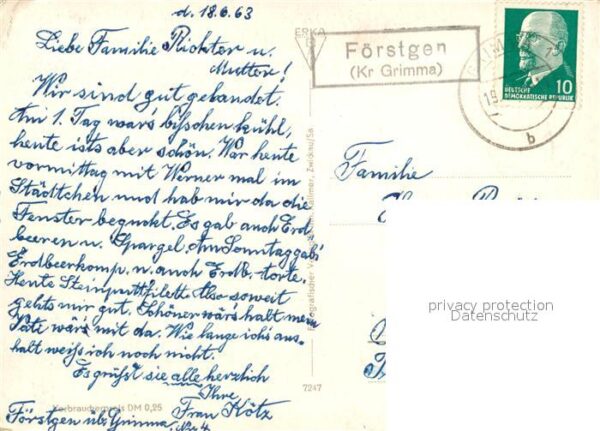 d. 18.6.63
Liebe Familie Richter u.
Mutter!
Wir sind gut gelandet.
Am 1. Tag war's bißchen kühl,
heute ists aber schön. War heute
vormittag mit Werner mal im
Städtchen und hab mir da die
Fenster beguckt. Es gab auch Erd
beeren u. Spargel. Am Sonntag gab's
Erdbeerkomp. u. auch Erdb.-torte.
Heute Steinbuttfilett. Also soweit
gehts mir gut. Schöner wärs halt mein
Pati wärs mit da. Wie lange ichs aus-
halt weiß ich noch nicht.
Es grüßt sie alle herzlich
Ihre
Frau Kötz
Förstgen üb. Grimma,
Verbraucherpreis DM 0,25
7247
ERKA
Förstgen
(Kr Grimma)
b
10
DEUTSCHE
DEMOKRATISCHE REPUBLIK
Familie
privacy protection
Datenschutz